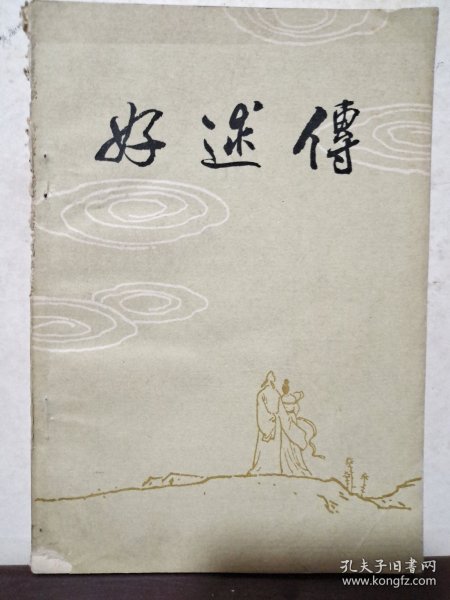 好逑傳
孔夫子旧书网
www.kongfz.com